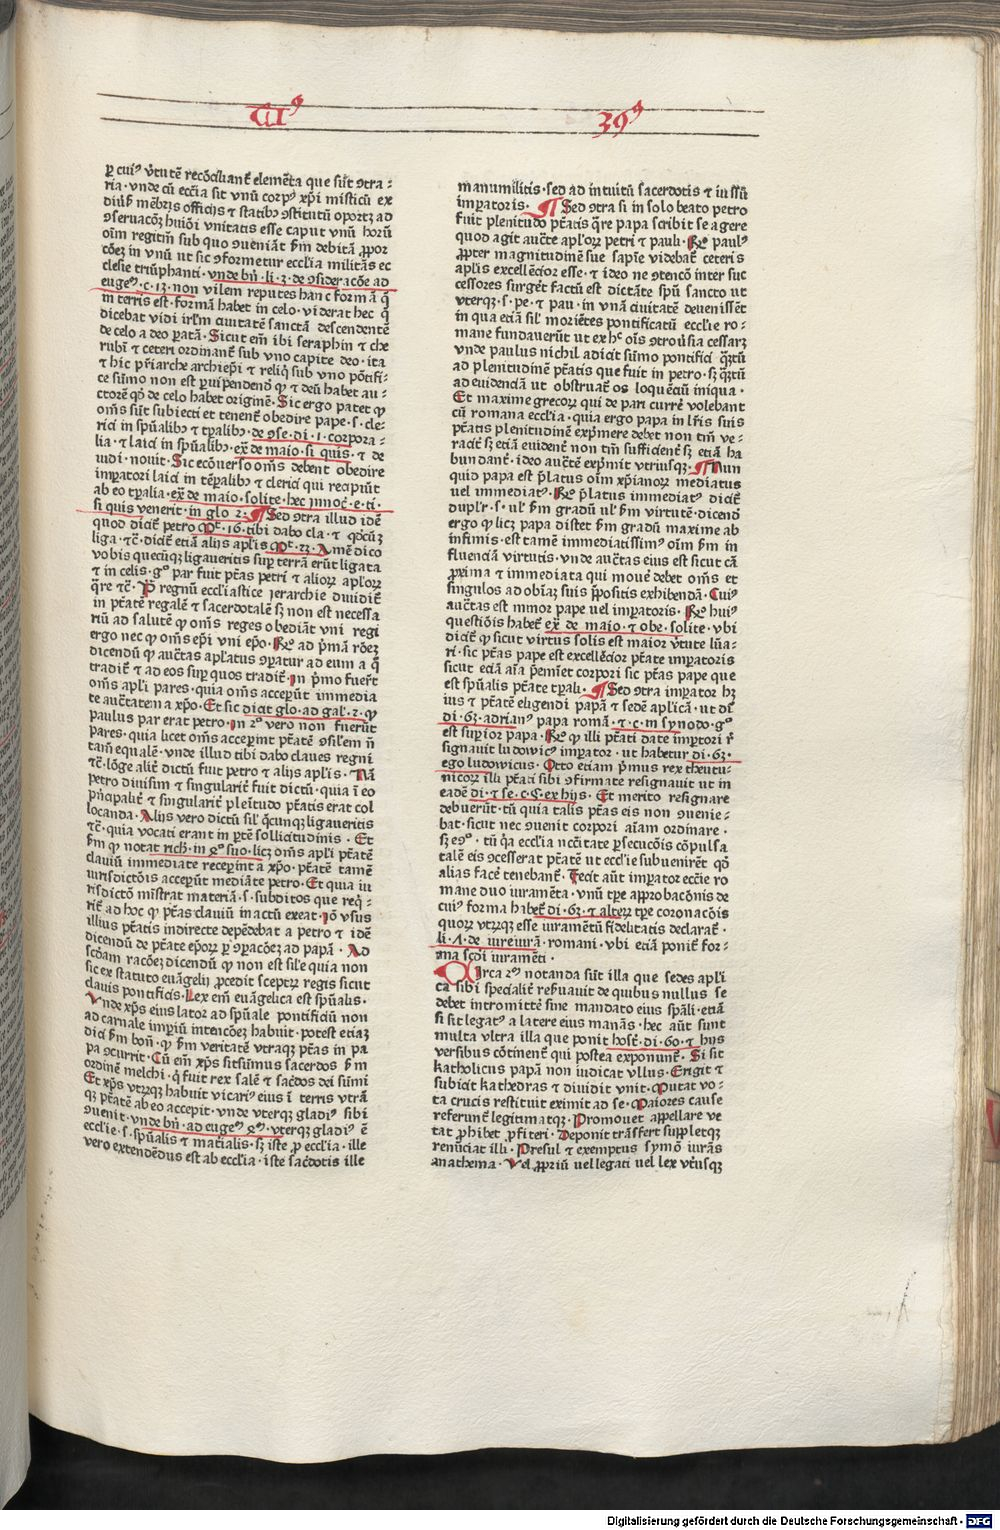 VIꝰ
39ꝰ
ꝑ cuiꝰ v̓tutē recōciliant̓ elemēta que sūt ꝯtra⸗
ria · vnde cū eccīa sit vnū corpꝰ xp̄i misticū ex
diūſ mēbrꝫ officijs ⁊ statibꝫ ꝯstitutū oportꝫ ad
ꝯseruacōꝫ huiōi vnitatis esse caput vnū horū
oīm regitīm̄ sub quo ꝯueniāt s̄m debitā ꝓpor
cōeꝫ in vnū ut sic ꝯformetur eccīa militās ec
clesie triūphanti · vnde bn̄ · li · 3 · de ꝯsideracōe ad
eugeⁿ · c · 13 · non vilem reputes hanc formā q̄
in terris est · formā habet in celo · viderat hec q̄
dicebat vidi irlm̄ ciuitatē sanctā descendentē
de celo a deo ꝑatā · Sicut em̄ ibi seraphin ⁊ che
rubī ⁊ ceteri ordinant̓ sub vno capite deo · ita
⁊ hic pr̄iarche archiep̄i ⁊ reliq̄ sub vno pōtifi⸗
ce sūmo non est ꝑuipendendū ꝙ ⁊ deū habet au⸗
ctorē qd̄ de celo habet originē · Sic ergo patet ꝙ
om̄s sūt subiecti et tenent̓ obedire pape · s · cle⸗
rici in sp̄ualibꝫ ⁊ tp̄alibꝫ · de ꝯse · di · 1 · corpora⸗
lia · ⁊ laici in sp̄ualibꝫ · ex̄ de maio · si quis · ⁊ de
iudi · nouit · Sic ecōuerso om̄s debent obedire
imp̄atori laici in tēp̄alibꝫ ⁊ clerici qui recipiūt
ab eo tp̄alia · ex̄ de maio · solite · hec jnnoc̄ · e · ti ·
si quis venerit · in glo 2 · ¶ Sed ꝯtra illud idē
quod dicit̓ petro Mᵗ · 16 · tibi dabo cla · ⁊ qd̄cūꝫ
liga · ⁊c̄ · dicit̓ etiā alijs apl̄is Mᵗ · 23 · Amē dico
vobis quecūqꝫ ligaueritis suꝑ terrā erūt ligata
⁊ in celis · gᵒ par fuit ptās petri ⁊ aliorꝝ apl̄orꝝ
q̄re ⁊c̄ · P̄ regnū eccl̄iastice jerarchie diuidit̓
in ptātē regalē ⁊ sacerdotalē sꝫ non est necessa
riū ad salutē ꝙ om̄s reges obediāt vni regi
ergo nec ꝙ om̄s ep̄i vni ep̄o · Rᵒ ad p̄mā rōeꝫ
dicendū ꝙ auctās apl̄atus ꝯparatur ad eum a q̄
tradit̓ ⁊ ad eos suꝑ quos tradit̓ · jn p̄mo fuer̓t
om̄s apl̄i pares · quia om̄s acceꝑūt immedia
te auct̄atem a xp̄o · Et sic dicit glo · ad gal̄ · 2 · ꝙ
paulus par erat petro · jn 2ᵒ vero non fuerūt
pares · quia licet om̄s acceꝑint ptātē ꝯsil̄em n̄
tam̄ equalē · vnde illud tibi dabo claues regni
⁊c̄ · lōge alit̓ dictū fuit petro ⁊ alijs apl̄is · Nā
petro diuisim ⁊ singularit̓ fuit dictū · quia ī eo
p̄ncipalit̓ ⁊ singularit̓ pleītudo ptātis erat col
locanda · Alijs vero dictū sil̓ q̄cunqꝫ ligaueritis
⁊c̄ · quia vocati erant in ꝑtē sollicitudinis · Et
s̄m ꝙ notat rich̄ · in qᵒ suo · licꝫ om̄s apl̄i ptātē
clauiū immediate receperīt a xp̄o · ptātē tamē
iurisdictōis acceꝑūt mediāte petro · Et quia iu
risdictō mīstrat materiā · s · subditos que req̄⸗
rit̓ ad hoc ꝙ ptās clauiū in actū exeat · jō vsus
illius ptātis indirecte depēdebat a petro ⁊ idē
dicendū de ptāte ep̄orꝝ ꝑ ꝯꝑacōeꝫ ad papā · Ad
scd̄am racōeꝫ dicendū ꝙ non est sil̄e quia non
sic ex statuto euāgelij ꝓcedit sceptrꝫ regis sicut
clauis pontificis · Lex em̄ euāgelica est sp̄ualis ·
Vnde xp̄s eius lator ad sp̄uale pontificiū non
ad carnale imp̄iū intencōeꝫ habuit · potest etiaꝫ
dici s̄m bon̄ · ꝙ s̄m veritatē vtraqꝫ ptās in pa
pa ꝯcurrit · Cū em̄ xp̄s sit sūmus sacerdos s̄m
ordinē melchi · q̄ fuit rex salē ⁊ sac̄dos dei sūmi
Et xp̄s vtrꝫqꝫ habuit vicariꝰ eius ī terris vtrā
qꝫ ptātē ab eo accepit · vnde vterqꝫ gladiꝰ sibi
ꝯuenit · vnde bn̄ · ad eugeⁿ qᵒ · vterqꝫ gladiꝰ ē
eccl̄ie · s · sp̄ualis ⁊ mat̄ialis · sꝫ iste ꝓ eccl̄ia · ille
vero extendēdus est ab eccl̄ia · iste sac̄dotis ille
manumilitis · sed ad intuitū sacerdotis ⁊ iussū
imꝑatoris · ¶ Sed ꝯtra si in solo beato petro
fuit plenitudo ptātis q̄re papa scribit se agere
quod agit auctē apl̄orꝝ petri ⁊ pauli · Rᵒ paulꝰ
ꝓpter magnitudinē sue sapīe videbat̓ ceteris
apl̄is excellēcior esse · ⁊ ideo ne ꝯtencō inter suc
cessores surget̓ factū est dictāte sp̄u sancto ut
vterqꝫ · s · pe · ⁊ pau · in vnā ciuitatē deuenissēt
in qua eciā sil̓ moriētes pontificatū eccl̄ie ro⸗
mane fundauerūt ut ex hᶜ oīs ꝯtrou̓sia cessarꝫ
vnde paulus nichil adicit sūmo pontifici q̄ꝫtū
ad plenitudinē ptātis que fuit in petro · sꝫ q̄ꝫtū
ad euidenciā ut obstruat̓ os loquēciū iniqua ·
Et maxime grecorꝝ qui de pari curre̓ volebant
cū romana eccl̄ia · quia ergo papa in lr̄is suis
ptātis plenitudinē expͥmere debet non tm̄ ve⸗
racit̓ sꝫ etiā euident̓ non tm̄ sufficient̓ sꝫ etiā ha
bundant̓ · ideo auctē expͥmit vtriusqꝫ · ¶ Nun
quid papa est p̄latus oīm xp̄ianorꝫ mediatus
uel immediatꝰ · Rᵒ p̄latus immediatꝰ dicit̓
dupl̓r · s · ul̓ s̄m gradū ul̓ s̄m virtutē · dicend
ergo ꝙ licꝫ papa distet s̄m gradū maxime ab
infimis · est tamē immediatissimꝰ oīm s̄m in
fluenciā virtutis · vnde auctās eius est sicut cā
ꝓxima ⁊ immediata qui moue̓ debet om̄s et
singulos ad obīaꝫ suis p̄positis exhibendā · Cuiꝰ
auctās est minor pape vel imꝑatoris · Rᵒ huiꝰ
questiōis habet̓ ex̄ de maio · ⁊ obe · solite · vbi
dicit̓ ꝙ sicut virtus solis est maior v̓tute lūa⸗
ri · sic ptās pape est excellēcior ptāte imꝑatoris
sicut eciā aīa p̄eminet corpori sic ptās pape que
est sp̄ualis ptāte tp̄ali · ¶ Sed ꝯtra imꝑator hꝫ
ius ⁊ ptātē eligendi papā ⁊ sedē aplicā · ut di
di · 63 · adrianꝰ papa romā · ⁊ · c · in synodo · gᵒ
est suꝑior papa · Rᵒ ꝙ illi ptāti date imꝑtori r̄
signauit ludowicꝰ imꝑator · ut habetur di · 63 ·
ego ludowicus · Otto etiam p̄mus rex theutu⸗
nicorꝝ illi ptāti sibi ꝯfirmate resignauit ut in
eadē di · ⁊ se · c · C · ex hijs · Et merito resignare
debuerūt · tū quia talis ptās eis non ꝯuenie⸗
bat · sicut nec ꝯuenit corpori aīam ordinare ·
sꝫ eꝯᵒ · tū q̄a eccl̄ia ncc̄itate ꝑsecucōis cōpulsa
talē eis ꝯcesserat ptātē ut eccl̄ie subuenirēt qd̄
alias face̓ tenebant̓ · Fecit aūt imꝑator eccīe ro
mane duo iuramēta · vnū tꝑe approbacōnis de
cuiꝰ forma habet̓ di · 63 · ⁊ alterꝫ tꝑe coronacōis
quorꝝ vtrꝫqꝫ esse iuramētū fidelitatis declarat̓ ·
li · 1 · de iureiurā · romani · vbi etiā ponit̓ for⸗
ma scd̄i iuramēti ·
Circa 2ᵐ notanda sūt illa que sedes apl̄i
ca sibi specialit̓ res̓uauit de quibus nullus se
debet intromitte̓ sine mandato eius sp̄ali · etiā
si sit legatꝰ a latere eius manās · hec aūt sunt
multa vltra illa que ponit host̓ · di · 60 · ⁊ hijs
versibus cōtinent̓ qui postea exponunt̓ · Si sit
katholicus papā non iudicat vllus · Erigit ⁊
subicit kathedras ⁊ diuidit vnit · Mutat vo⸗
ta crucis restituit eximit ad se · Maiores cause
referunt̓ legitimatqꝫ · Promouet appellare ve
tat ꝓhibet ꝓfiteri · Deponit trāsfert suppletqꝫ
renūciat illi · Presul ⁊ exemptus symō iurās
anathema · Vel ꝓpriū uel legati uel lex vt̓usqꝫ
Digitalisierung gefördert durch die Deutsche Forschungsgemeinschaft · DFG